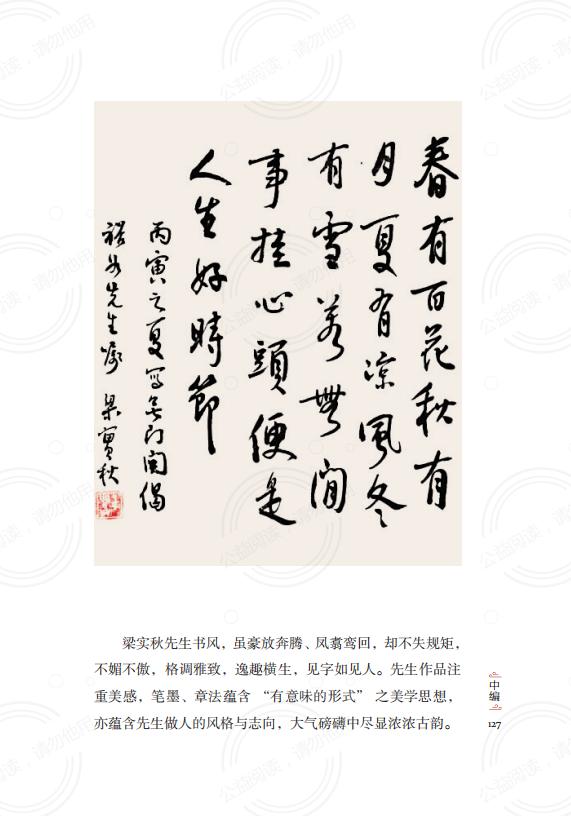 春有百花秋有
月夏有凉風冬
有雪若無閒
事挂心頭便是
人生好時節
丙寅之夏寫無门関偈
先生嘱 梁實秋
梁实秋先生书风，虽豪放奔腾、凤翥鸾回，却不失规矩，
不媚不傲，格调雅致，逸趣横生，见字如见人。先生作品注
重美感，笔墨、章法蕴含“有意味的形式”之美学思想，
亦蕴含先生做人的风格与志向，大气磅礴中尽显浓浓古韵。
中编
127
公益阅读，请勿他用